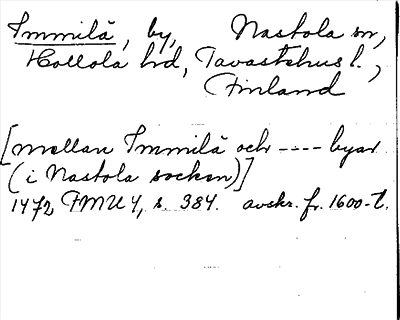 Immilä, by, Nastola sn,
Hollola hd, Tavastehus l.,
Finland
[mellan Immilä och ---- byar
(i Nastola socken)]
1472 FMU 4, s. 384. avskr. fr. 1600-t.